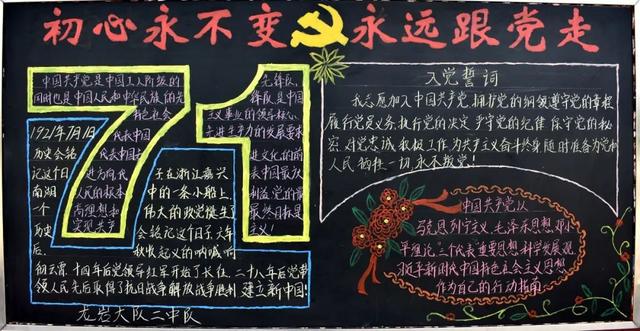 初心永不变 永远跟党走
中国共产党是中国工人阶级的 先锋队,
同时也是中国人民和中华民族的先 锋队是中国
特色社会 主义事业的领导核心,
1921年7月1日 代表中国 先进生产力的发展要求
历史会铭 代表中国 进文化的前
记这个日 进方向代 子在浙江嘉兴 表中国最
南湖 人民的根本 中的一条小船上, 利益 党的最
一个 高理想和 伟大的政党诞生了 最终目标是
历史 实现共产 会铭记这个日子 年 主义
后. 秋收起义的呐喊响
彻云霄 十四年后党领导红军开始了长征. 二十八年后党带
领人民先后取得了抗日战争解放战争胜利 建立新中国!
龙岩大队二中队
71
入党誓词
我志愿加入中国共产党, 拥护党的纲领遵守党的章程
履行党员义务执行党的决定 严守党的纪律 保守党的秘
密 对党忠诚 积极工作 为共产主义奋斗终身 随时准备为党和
人民 牺牲一切 永不叛党!
中国共产党以
马克思列宁主义, 毛泽东思想, 邓小
平理论,"三个代表"重要思想, 科学发展观
习近平新时代中国特色社会主义思想
作为自己的行动指南